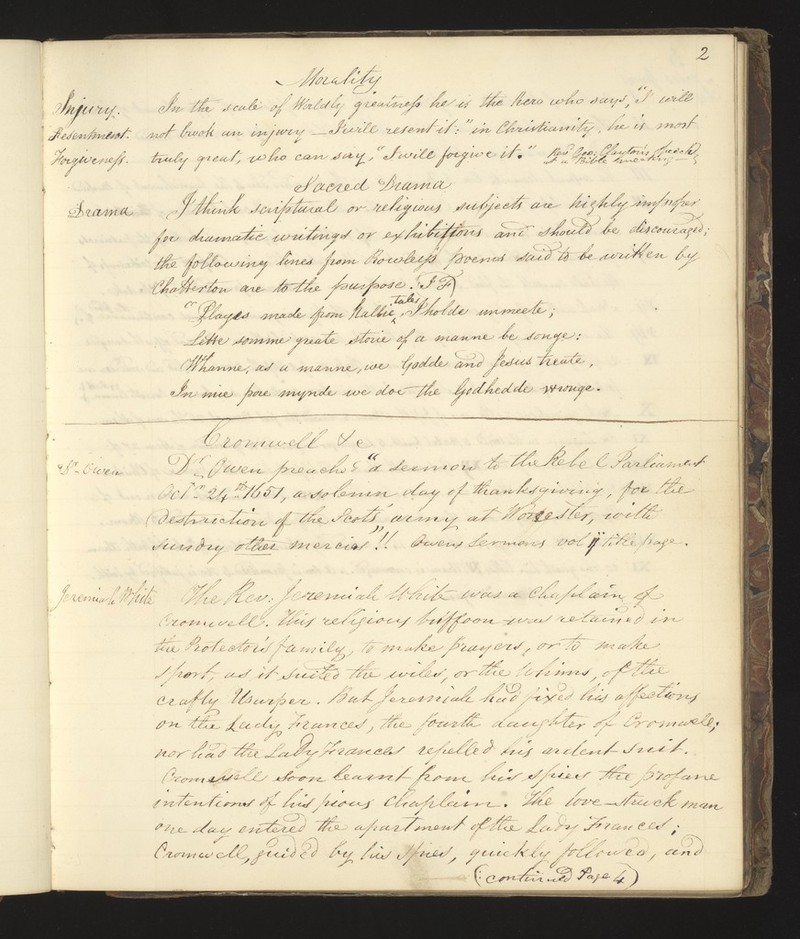 2
Morality
Injury. In the scale of Worldly greatness he is the hero who says, "I will
Resentment. not brook an injury — I will resent it:" in Christianity, he is most
Forgiveness. truly great, who can say, "I will forgive it." Rev. Geo. Clayton's Speech
at a Bible meeting —
Sacred Drama
Drama I think scriptural or religious subjects are highly improper
for dramatic writings or exhibitions and should be discouraged;
the following lines from Rowley's poems said to be written by
Chatterton are to the purpose.
"Playes made from hallie tales I holde unmeete;
Lette somme greate storie of a manne be songe:
Whanne, as a manne, we Godde and Jesus treate,
In mie pore mynde we doe the Godhedde wronge.
Cromwell &c
Dr. Owen Dr. Owen preached "a sermon to the Rebel Parliament
Octr. 24th 1651, a solemn day of thanksgiving, for the
Destruction of the Scots' army at Worcester, with
sundry other mercies"!! Owens Sermons vol ii title page.
Jeremiah White The Rev: Jeremiah White was a chaplain of
Cromwell. This religious buffoon was retained in
the Protector's family, to make prayers, or to make
sport, as it suited the wiles, or the whims, of the
crafty Usurper. But Jeremiah had fixed his affections
on the Lady Frances, the fourth daughter of Cromwell;
nor had the Lady Frances repelled his ardent suit.
Cromwell soon learnt from his spies the profane
intentions of his pious chaplain. The love-struck man
one day entered the apartment of the Lady Frances;
Cromwell, guided by his spies, quickly followed, and
(: continued Page 4)